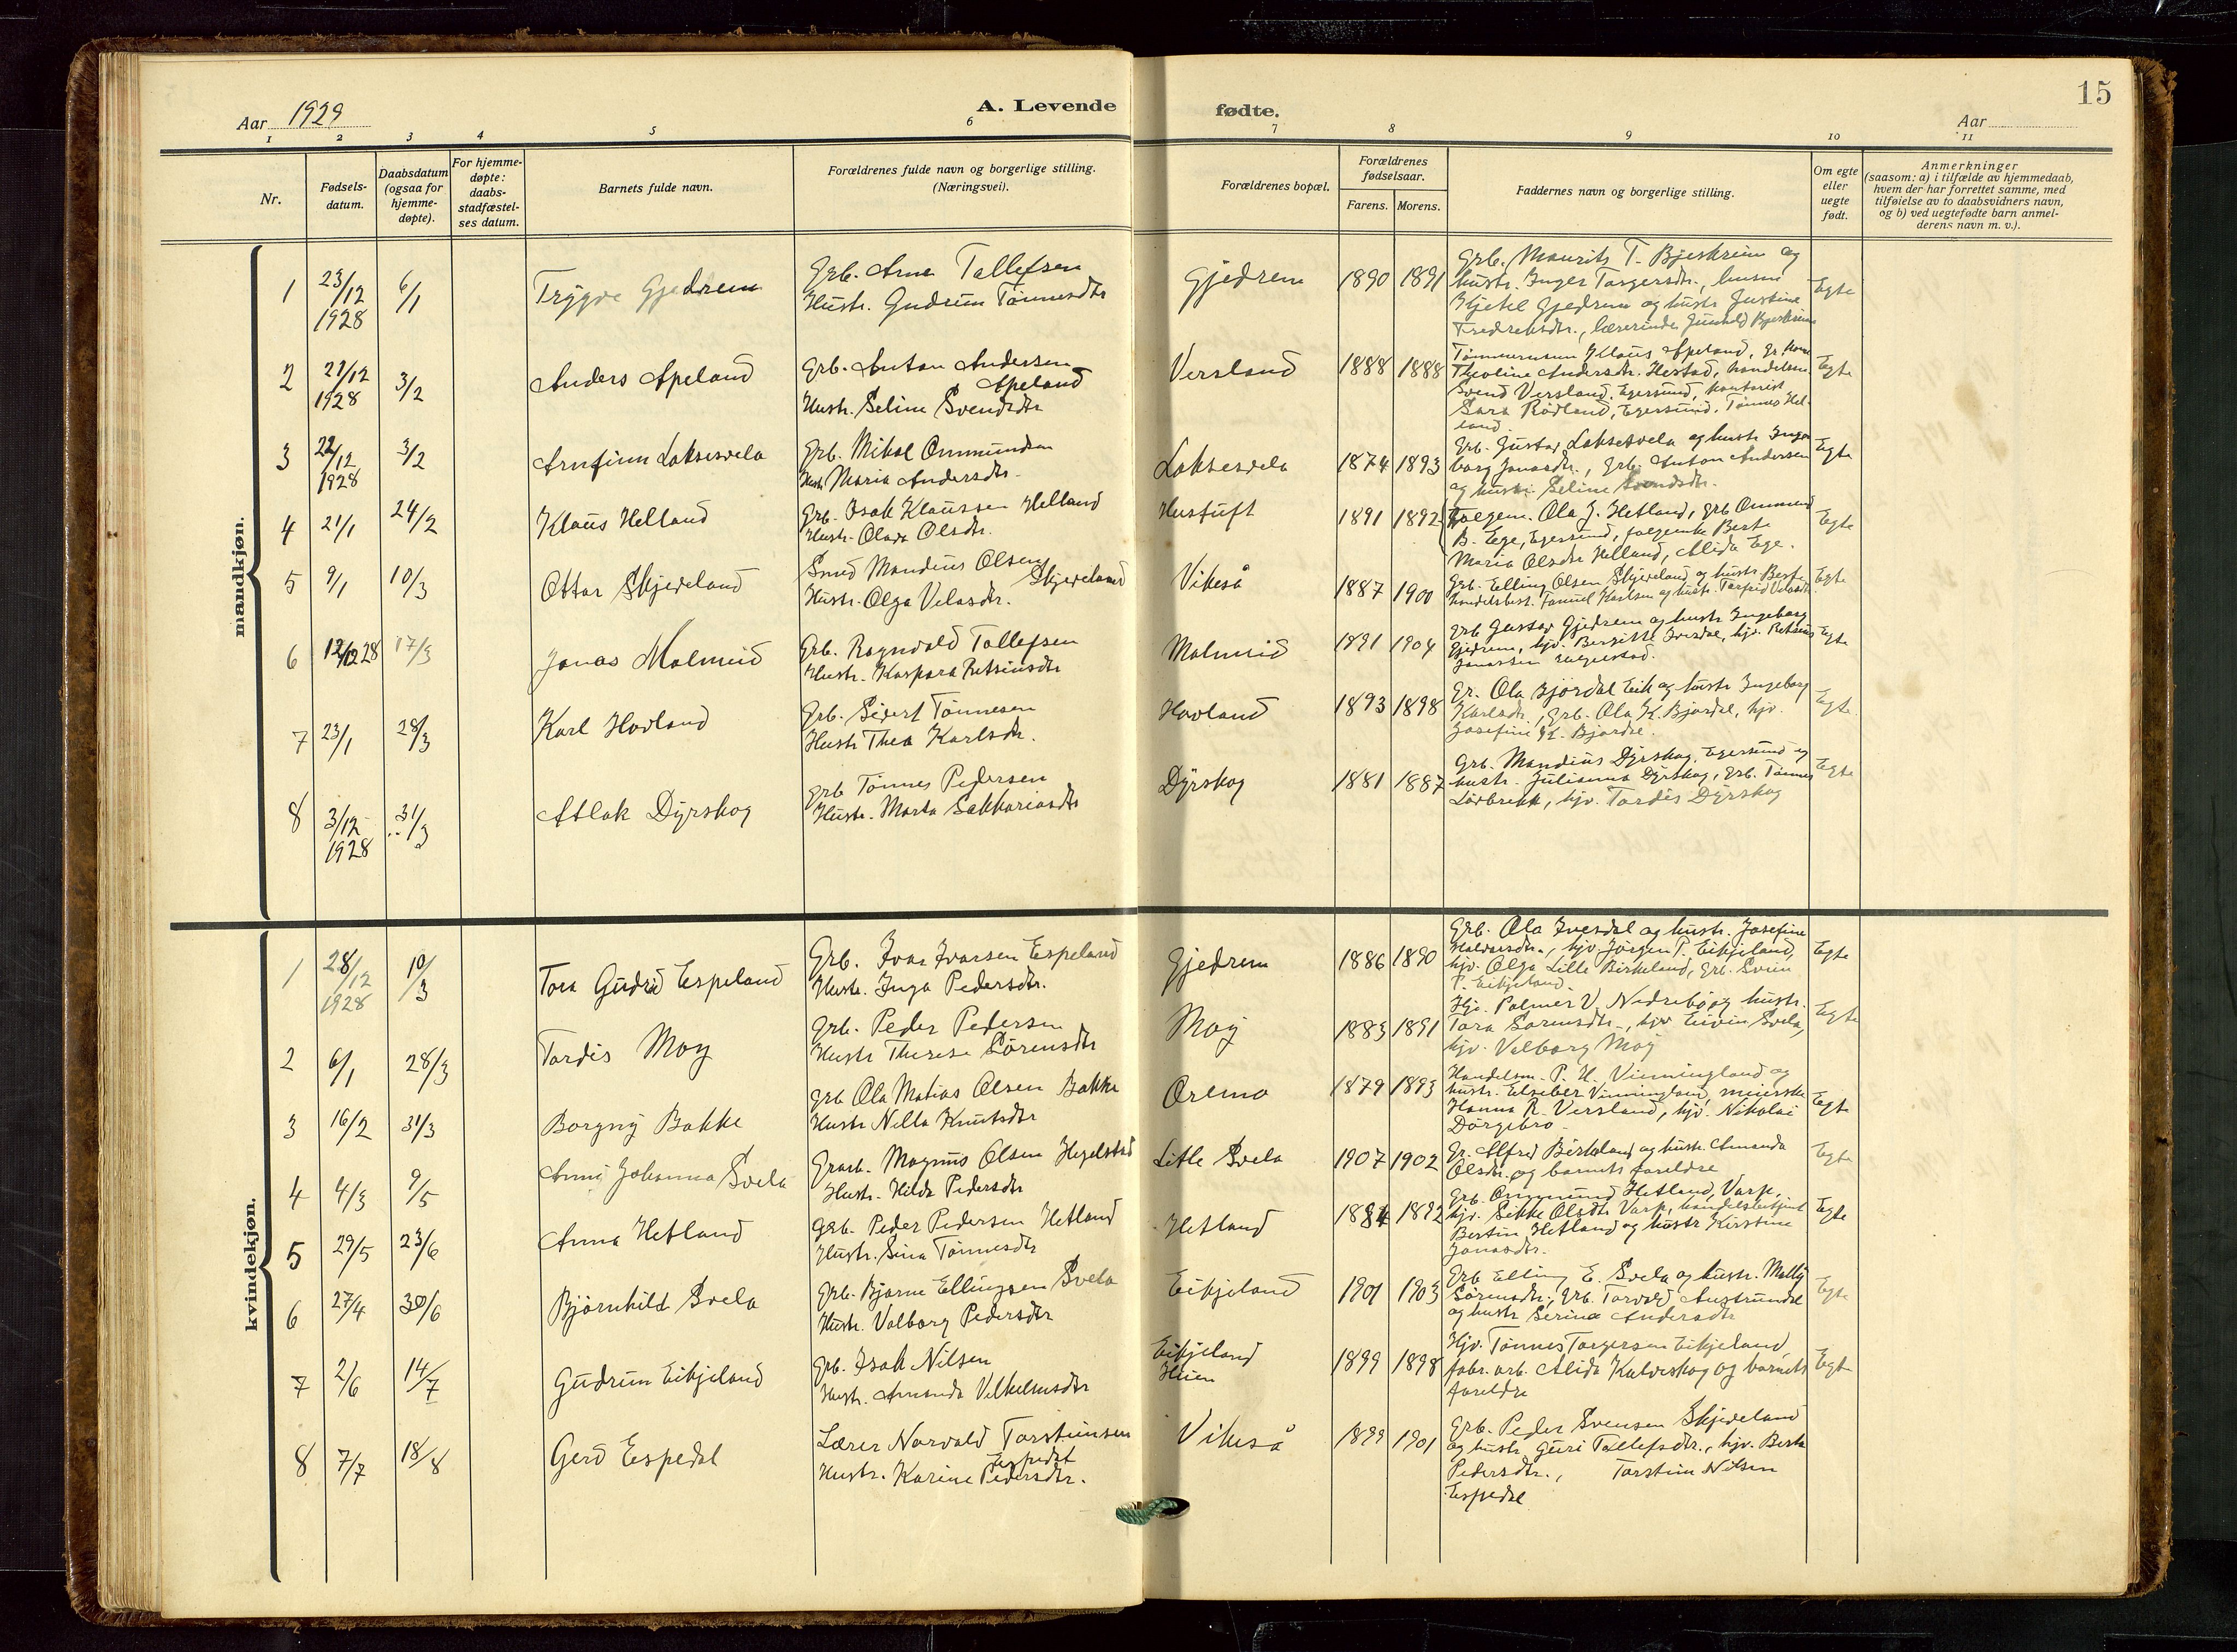 Aar 1929
A. Levende fødte.
15
Aar
1 2 3 4 5 6 7 8 9 10 11
Nr.
Fødsels-
datum.
Daabsdatum
(ogsaa for
hjemme-
døpte).
For hjemme-
døpte:
daabs-
stadfæstel-
ses datum.
Barnets fulde navn.
Forældrenes fulde navn og borgerlige stilling.
(Næringsvei).
Forældrenes bopæl.
Forældrenes
fødselsaar.
Farens. Morens.
Faddernes navn og borgerlige stilling.
Om egte
eller
uegte
født.
Anmerkninger
(saasom: a) i tilfælde av hjemmedaab,
hvem der har forrettet samme, med
tilføielse av to daabsvidners navn,
og b) ved uegtefødte barn anmel-
derens navn m. v.).
mandkjøn.
1 23/12 1928 6/1 Trygve Gjedrem
Grb. Arne Tollefsen
Hustr. Gudrun Tønnesdtr
Gjedrem 1890 1891
Grb. Maurits T. Bjerkreim og
hustr. Inger Torgersdtr.,
Kjetel Gjedrem og hustr Justine
Fredriksdtr., lærerinde Gunhild Bjerkreim
Egte
2 21/12 1928 3/2 Anders Apeland
Grb. Anton Andersen
Apeland
Hustr. Seline Svendsdtr
Versland 1888 1888
Tømmermann Klaus Apeland,
Theoline Andersdtr. Hestad, handelsm.
Svend Versland, Egersund, kontorist
Sara Rødland, Egersund, Tønnes Hel-
land.
Egte
3 22/12 1928 3/2 Arnfinn Laksesvela
Grb. Mikal Ommundsen
Hustr Maria Andersdtr.
Laksesvela 1874 1893
Grb. Gustav Laksesvela og hustr Inge
borg Jonasdtr., Grb. Anton Andersen
og hustr. Seline Svendsdtr.
Egte
4 21/1 24/2 Klaus Helland
Grb. Isak Klaussen Helland
Hustr. Olava Olsdtr.
Hustuft 1891 1892
Folgem. Ola J. Hetland, Grb Ommund
B. Ege, Egersund, folgemke Berte
Maria Olsdtr Helland, Alida Ege.
Egte
5 9/1 10/3 Ottar Skjeveland
Smed Mandius Olsen
Skjeveland
Hustr. Olga Velasdtr.
Vikeså 1887 1900
Grb. Elling Olsen Skjeveland og hustr Berte
handelsbest. Samuel Karlsen og hustr. Torfrid Velasdtr
Egte
6 12/12 28 17/3 Jonas Malmeid
Grb. Ragnvald Tollefsen
Hustr. Kaspara Retsiusdtr
Malmeid 1891 1904
Grb Gustav Gjedrem og hustr Ingeborg
Gjedrem, hjv. Bergitte Ivesdal, hjv. Retsius
Jonassen
Egte
7 23/1 28/3 Karl Hovland
Grb. Sivert Tønnesen
Hustr Thea Karlsdtr.
Hovland 1893 1898
Gr. Ola Bjørdal Eik og hustr Ingeborg
Karlsdtr., Grb. Ola K. Bjørdal, hjv.
Josefine K. Bjørdal.
Egte
8 3/12 1928 31/3 Atlak Dyrskog
Grb Tønnes Pedersen
Hustr. Marta Sakkariasdtr
Dyrskog 1881 1887
Grb. Mandius Dyrskog, Egersund og
hustr. Julianna Dyrskog, Grb. Tønnes
Løvbrekk, hjv. Tordis Dyrskog
Egte
kvindekjøn.
1 28/12 1928 10/3 Tora Gudrid Espeland
Grb. Ivar Ivarsen Espeland
Hustr. Inga Pedersdtr.
Gjedrem 1886 1890
Grb. Ola Ivesdal og hustr. Josefine
Halvorsdtr., hjv. Jørgen P. Eikjeland,
hjv. Olga Lille Birkeland, Grb. Svein
P. Eikjeland.
Egte
2 6/1 28/3 Tordis Moy
Grb. Peder Pedersen
Hustr Therese Sørensdtr
Moy 1883 1891
Hjv. Palmer V. Nedrebø og hustr.
Tora Sørensdtr., hjv Eivin Svela,
hjv. Valborg Moy
Egte
3 16/2 31/3 Borgny Bakke
Grb Ola Matias Olsen Bakke
Hustr Nella Knutsdtr
Øremo 1879 1893
Handelsm. P. H. Vinningland og
hustr. Elseber Vinningland, meierske
Hanna R. Versland, hjv. Nikolai
Dørgebro
Egte
4 4/3 9/5 Anni Johanna Svela
Grarb. Magnus Olsen Hegelstad
Hustr. Hilda Pedersdtr
Litle Svela 1907 1902
Gr. Alfred Birkeland og hustr. Amanda
Olsdtr. og barnets foreldre
Egte
5 29/5 23/6 Anna Hetland
Grb. Peder Pedersen Hetland
Hustr. Sina Tønnesdtr
Hetland 1884 1892
Grb. Ommund Hetland, Varp,
hjv. Sikke Olsdtr Varp, handelsbetjent
Bertin Hetland og hustr Kirstine
Jonasdtr.
Egte
6 27/4 30/6 Bjørnhild Svela
Grb. Bjarne Ellingsen Svela
Hustr. Valborg Pedersdtr
Eikjeland 1901 1903
Grb Elling E. Svela og hustr. Mally
Sørensdtr., Grb. Torvald Austrumdal
og hustr Serina Andersdtr
Egte
7 2/6 14/7 Gudrun Eikjeland
Grb. Isak Nilsen
Hustr. Amanda Vilhelmsdtr
Eikjeland
1899 1898
Hjv. Tønnes Torgersen Eikjeland,
fabr. arb. Alida Kalveskog og barnets
foreldre
Egte
8 7/7 18/8 Gerd Espedal
Lærer Norvald Torsteinsen
Espedal
Hustr. Karine Pedersdtr.
Vikeså 1899 1901
Grb. Peder Svensen Skjeveland
og hustr. Guri Tollefsdtr., hjv. Berta
Pedersdtr., Torstein Nilsen
Espedal